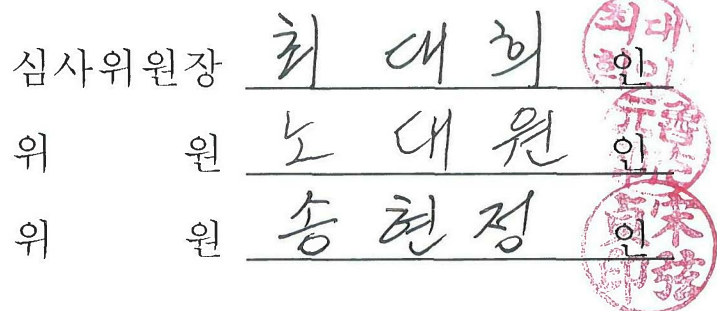 심사위원장 최 대 희 인
위 원 노 대 원 인
위 원 송 현 정 인